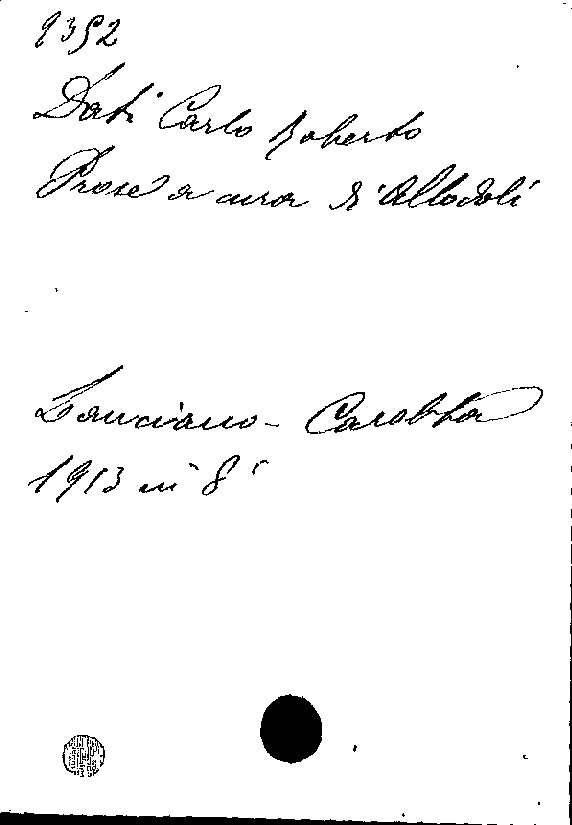 9352
Dati Carlo Roberto
Prose a cura di Allodoli
Lanciano - Carabba
1913 in 8°